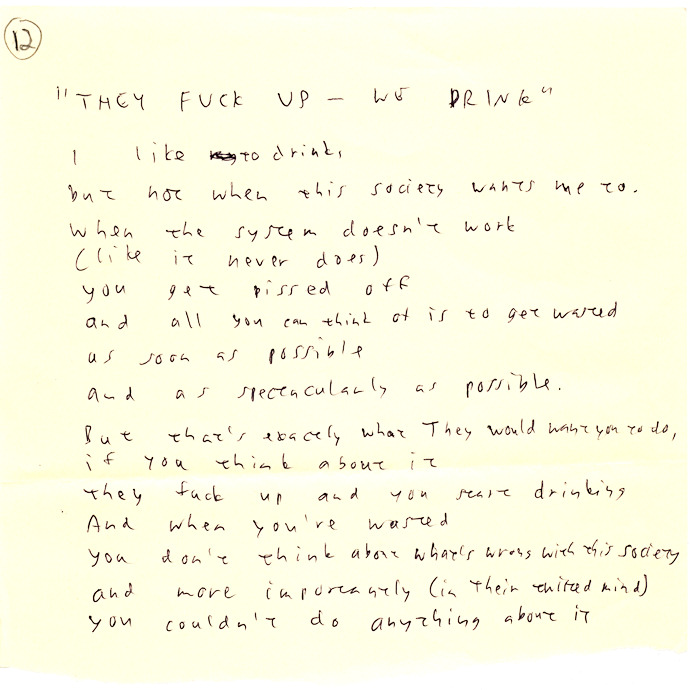 12
"THEY FUCK UP — WE DRINK"
I like to drink,
but not when this society wants me to.
When the system doesn't work
(like it never does)
you get pissed off
and all you can think of is to get wasted
as soon as possible
and as spectacularly as possible.
But that's exactly what They would want you to do,
if you think about it
they fuck up and you start drinking
And when you're wasted
you don't think about what's wrong with this society
and more importantly (in their twisted mind)
you couldn't do anything about it